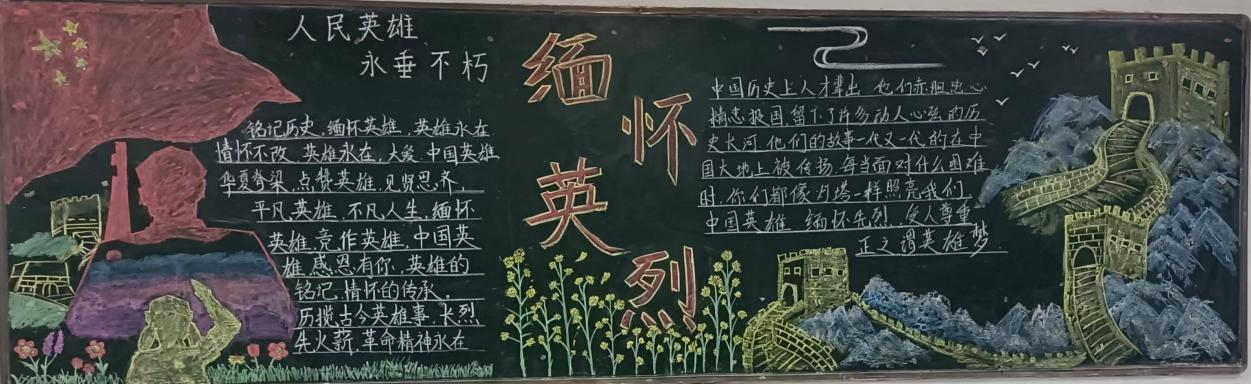 人民英雄
永垂不朽
铭记历史,缅怀英雄,英雄永在
情怀不改,英雄永在,大爱,中国英雄
华夏脊梁,点赞英雄,见贤思齐,
平凡英雄,不凡人生,缅怀
英雄,竞作英雄,中国英
雄,感恩有你,英雄的
铭记,情怀的传承,
历揽古今英雄事,长烈
先火薪,革命精神永在
缅怀英烈
中国历史上人才辈出,他们赤胆忠心
精忠报国,留下了许多动人心弦的历
史长河,他们的故事一代又一代的在中
国大地上被传扬,每当面对什么困难
时,你们都像灯塔一样照亮我们,
中国英雄,缅怀先烈,受人尊重
正之谓英雄梦.